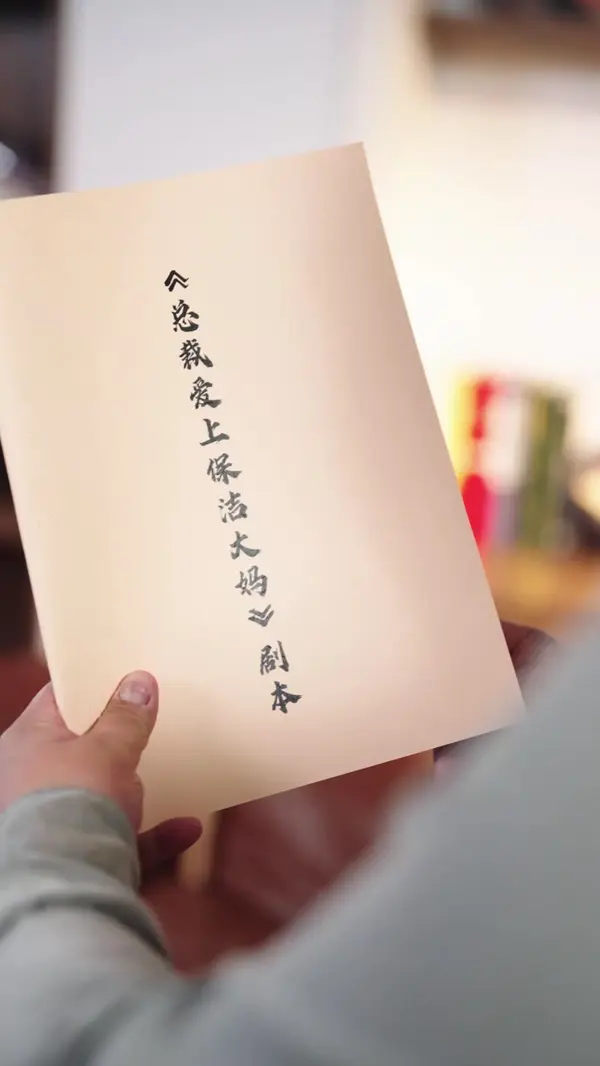 《总裁爱上保洁大妈》剧本